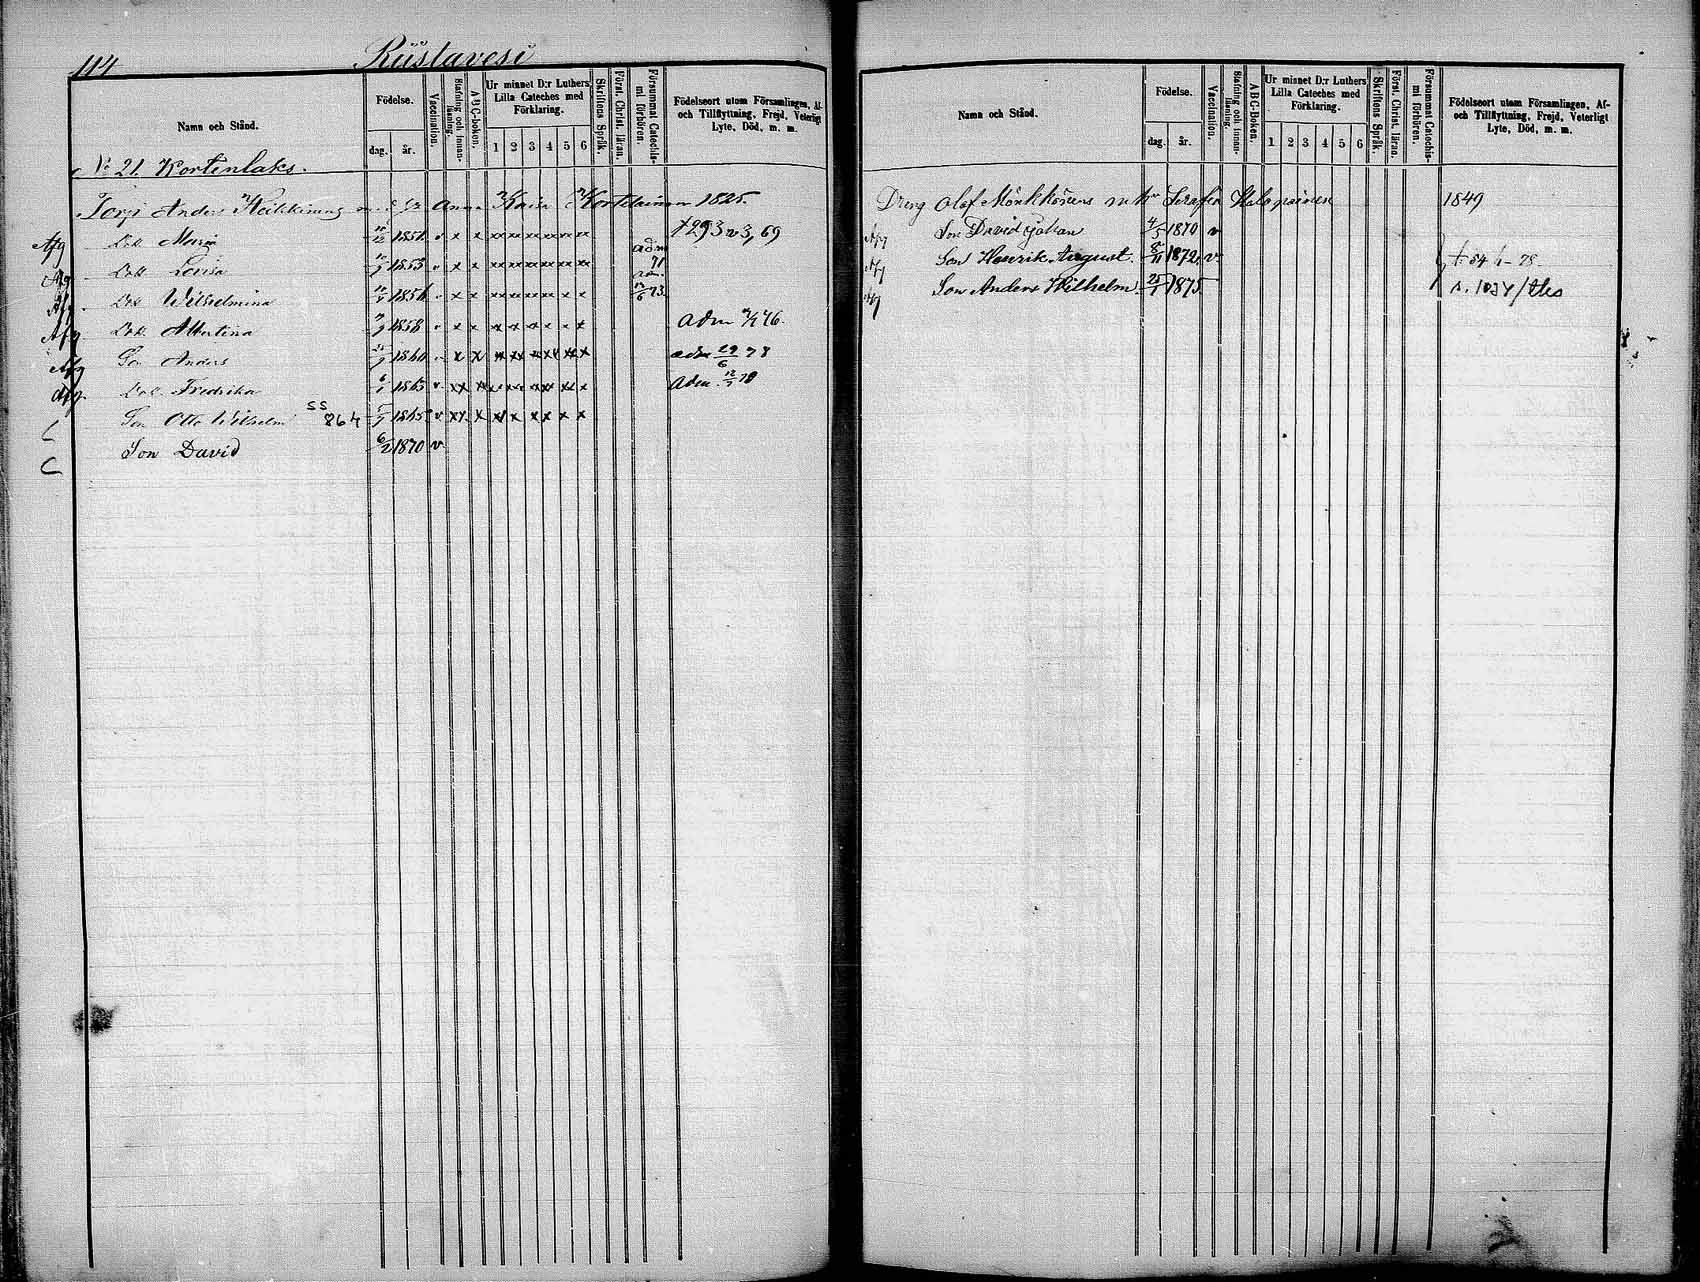 114
Riistavesi
Namn och Stånd.
Födelse.
dag.
år.
Vaccination.
Stafning och innanläsning.
ABC-boken.
Ur minnet D:r Luthers
Lilla Cateches med
Förklaring.
1 2 3 4 5 6
Skriftens Språk.
Först. Christ. läran.
Försummat Catechismi förhören.
Födelseort utom Församlingen, Af-
och Tillflyttning, Frejd, Veterligt
Lyte, Död, m. m.
No 21. Kortenlaks.
Torp Anders Heikkinens Anna Kaisa Kortelainen 1825.
Afg Dott. Maria 1851 v x x †29 3, 69
Afg Dott. Lovisa 1853 v x x adm 71
Afg Dott. Wilhelmina 1856 v x x 73
Afg Dott. Albertina 1858 v x x adm 76.
Afg Son Anders 1860 v x x adm 29/6 78
Afg. Dott. Fredrika 1863 v xx xx adm. 78
Son Otto Wilhelm SS 264 1865 v xx x
Son David 6/2 1870 v
Namn och Stånd.
Födelse.
dag.
år.
Vaccination.
Stafning och innanläsning.
ABC-Boken.
Ur minnet D:r Luthers
Lilla Cateches med
Förklaring.
1 2 3 4 5 6
Skriftens Språk.
Först. Christ. läran.
Försummat Catechismi förhören.
Födelseort utom Församlingen, Af-
och Tillflyttning, Frejd, Veterligt
Lyte, Död, m. m.
Dreng Olof Mönkkönens m hu Serafia Halapainen 1849
Afg Son David Johan 4/5 1870 v
Afg Son Henrik August. 8/11 1872 v
Afg Son Anders Wilhelm. 1875